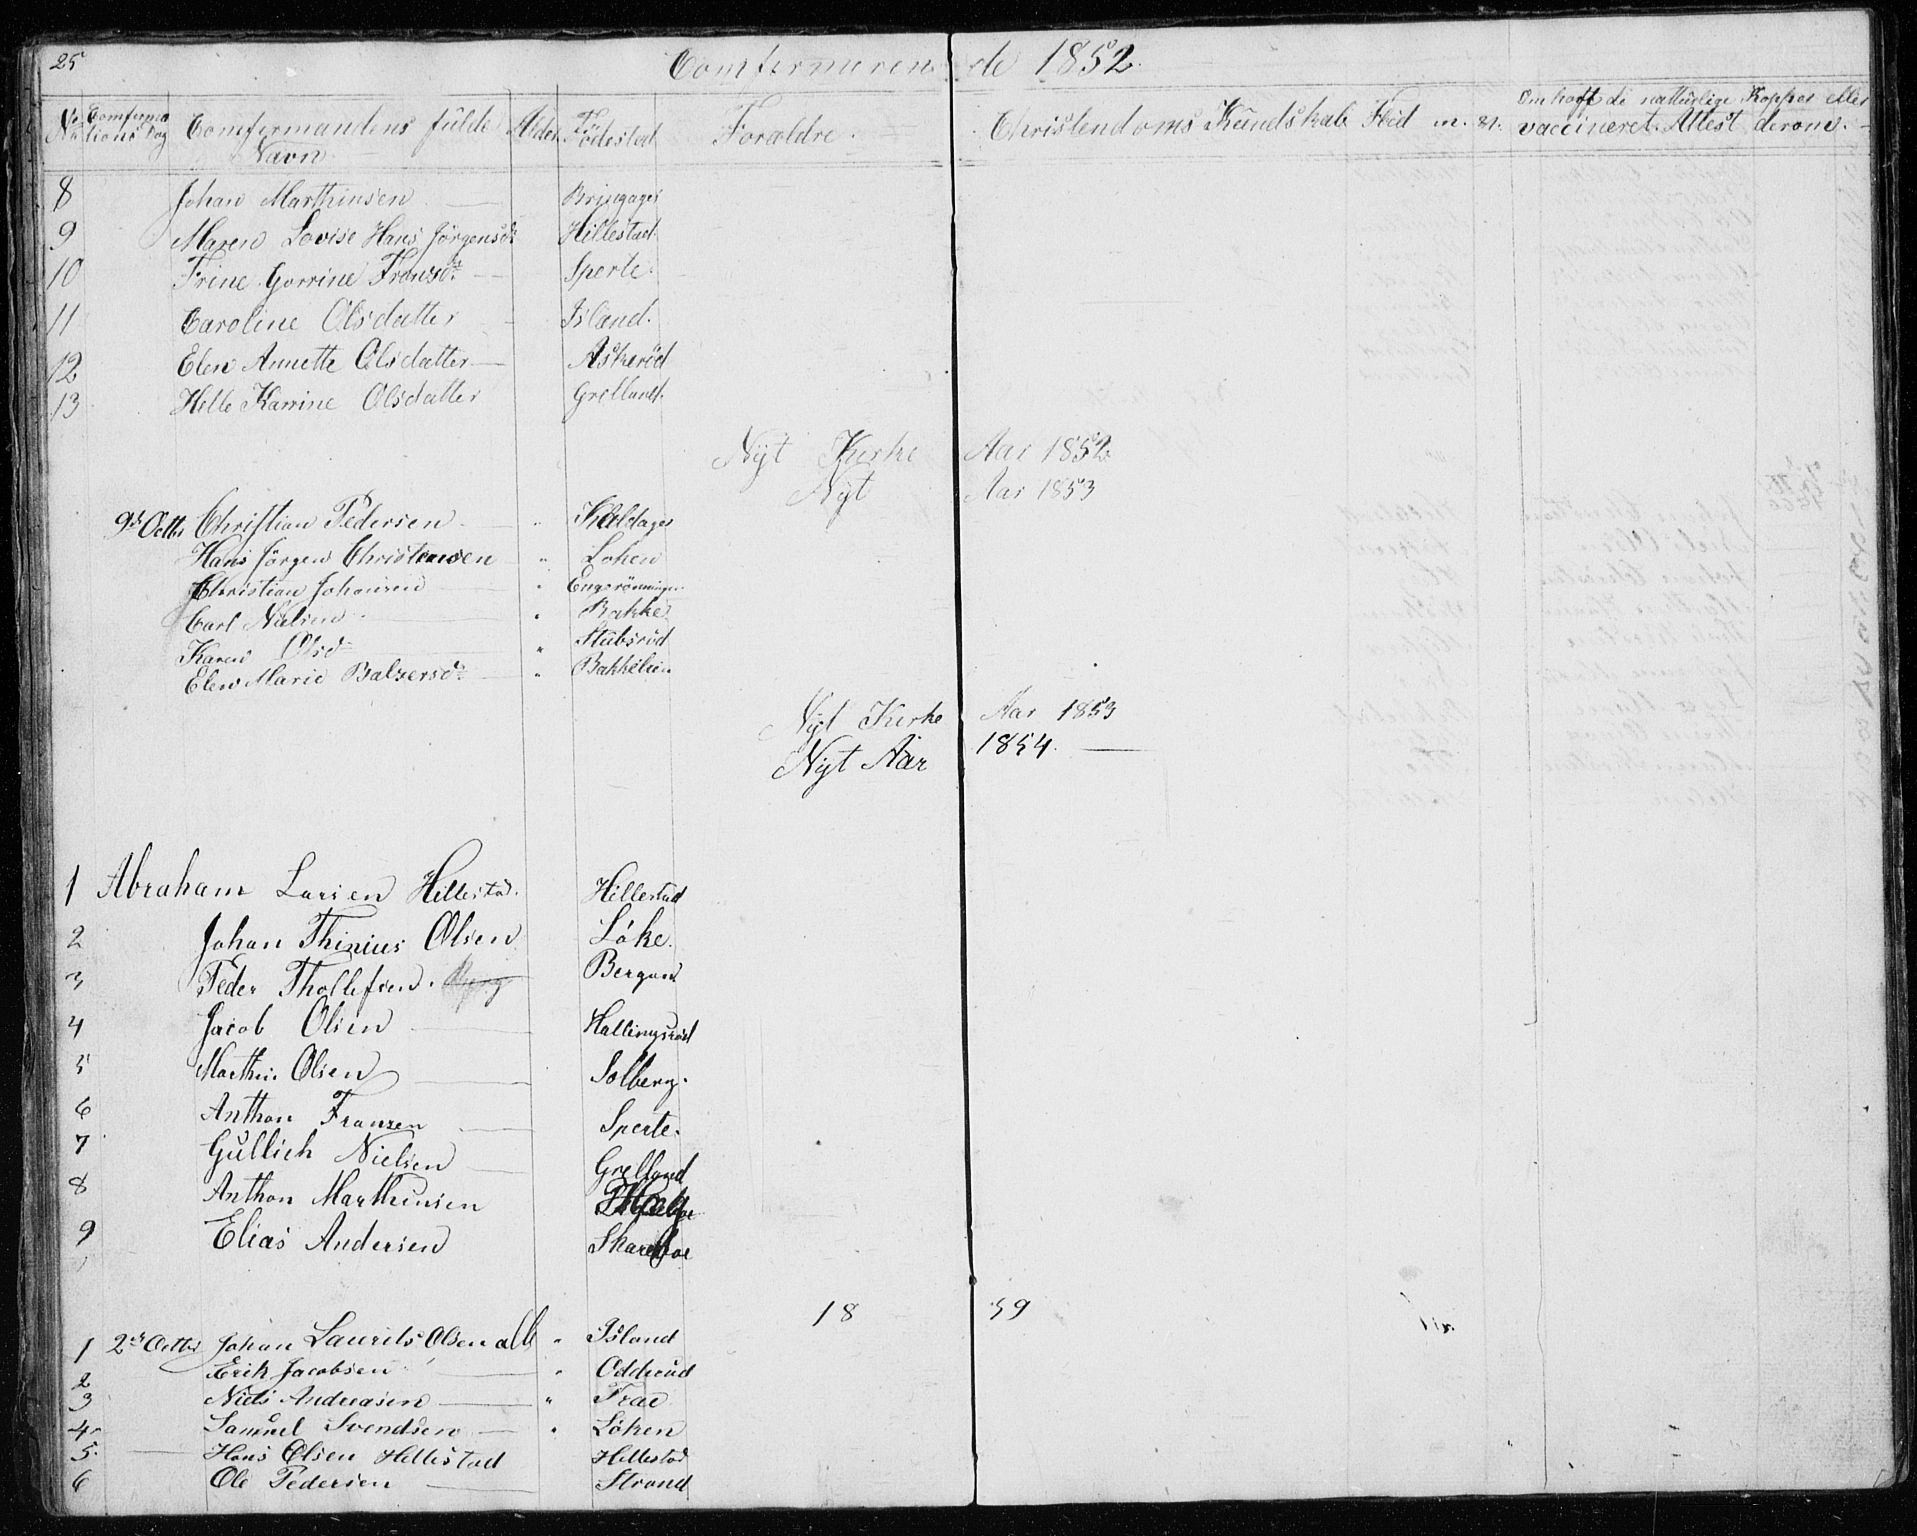 25
Comfermeren de 1852.
No Comferma tions Dag Comfermandens fulde Navn Alder Födested Forældre. Christendoms Kundskab Flid m. Om haft de naturlige Kopper eller vaccineret. Attest derom.
8 Johan Marthinsen Bringager
9 Maren Lovise Hans Jörgensdr Hillestad
10 Gorrine Fransdr Sperte.
11 Caroline Olsdatter Island.
12 Elen Annette Olsdatter Askeröd
13 Helle Karrine Olsdatter Grelland.
Nÿt Kirke Aar 1852
Nÿt Aar 1853
9de Octbr Christian Pedersen " Kaldager
Hans Jörgen Christensen " Löken
Christian Johansen " Engerönningen
Carl Nielsen " Bakke
Karen Olsdr " Stubsröd
Elen Marie Balzersdr " Bakkelien
Nÿt Kirke Aar 1853
Nÿt Aar 1854.
1 Abraham Larsen Hillestad. Hillestad
2 Johan Thinius Olsen Löke.
3 Peder Thollefsen. Bergan
4 Jacob Olsen Hallingsröd
5 Marthin Olsen Solberg.
6 Anthon Franzen Sperte.
7 Gullich Nielsen Grelland
8 Anthon Marthinsen
9 Elias Andersen
18 59
1 2den Octbr Johan Laurits Olsen " Island
2 Erik Jacobsen " Odderud
3 Niels Andreasen " Frae
4 Samuel Svendsen " Löken
5. Hans Olsen Hillestad Hillestad
6 Ole Pedersen Strand